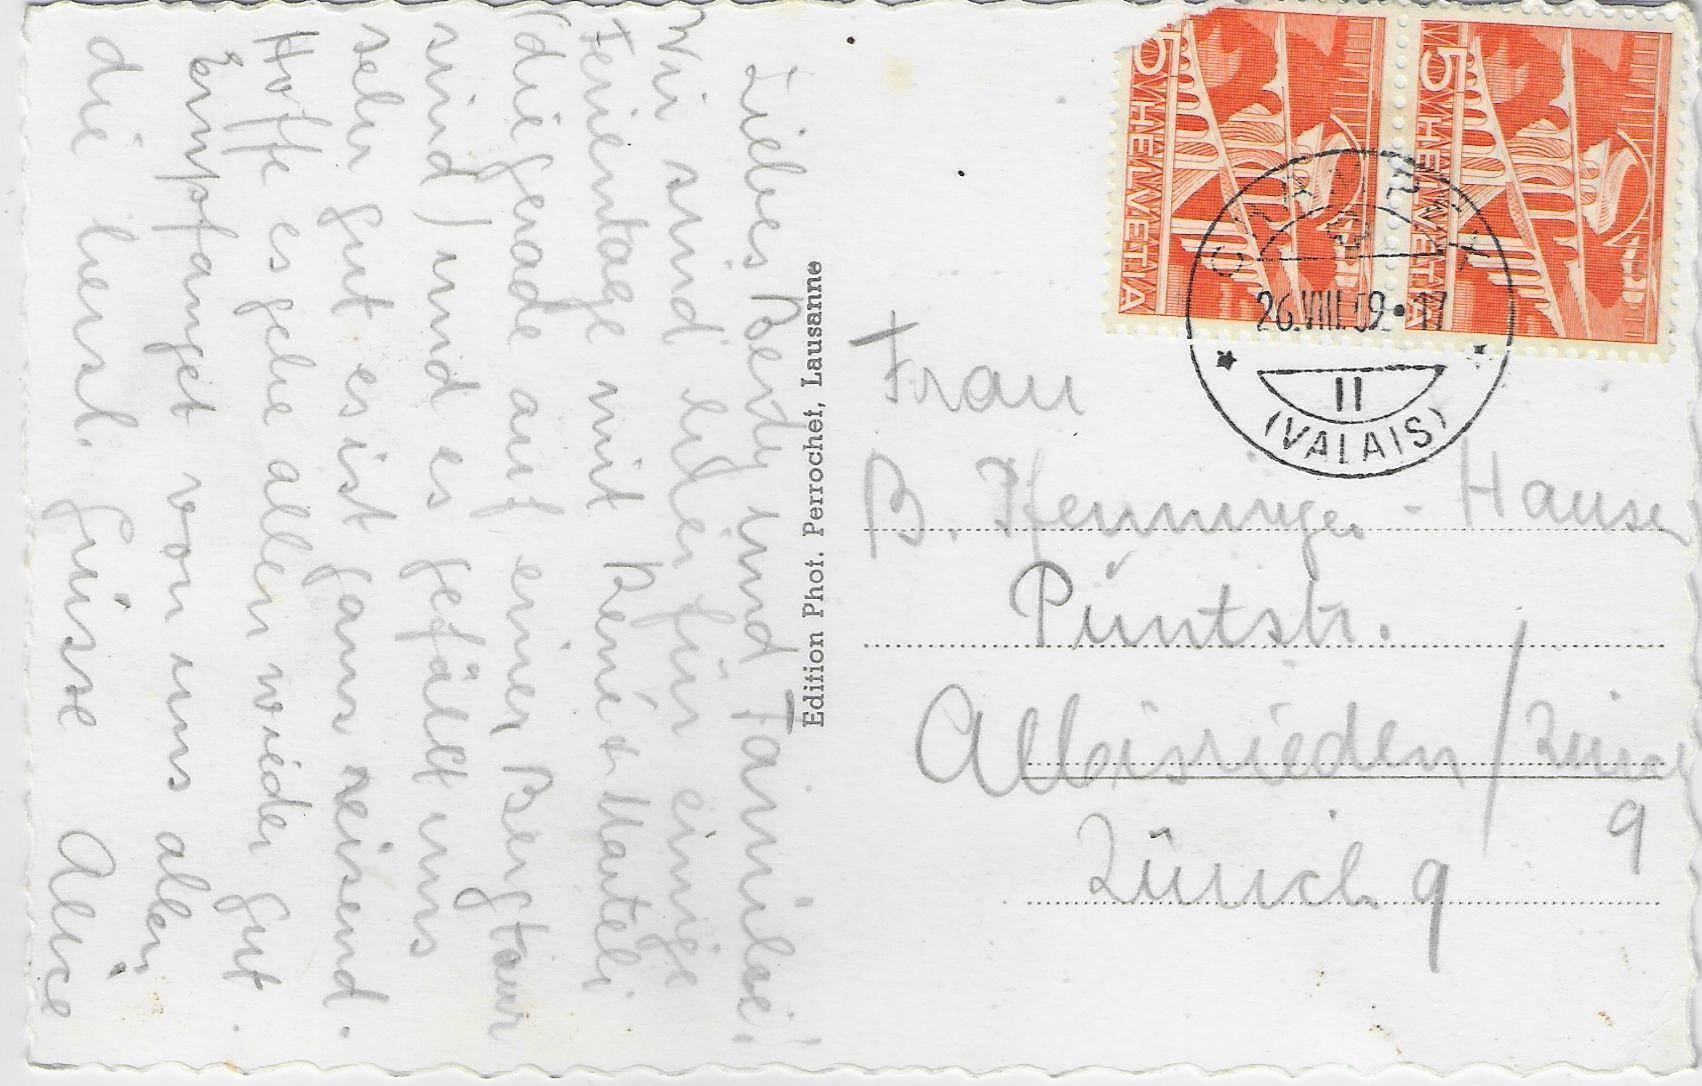 Liebes Berty und Familie!
Wir sind hier für einige
Ferientage mit René & Marteli
(die gerade auf einer Bergtour
sind) und es gefällt uns
sehr gut es ist ganz reisend.
Hoffe es gehe allen wieder gut.
Empfanget von uns allen
die herzl. Grüsse Alice
Edition Phot. Perrochet, Lausanne
5 HELVETIA
5 HELVETIA
26.VIII.59.-17
II
(VALAIS)
Frau
B. Pfenninger - Hauser
Püntstr.
Albisrieden / Zürich
9
Zürich 9